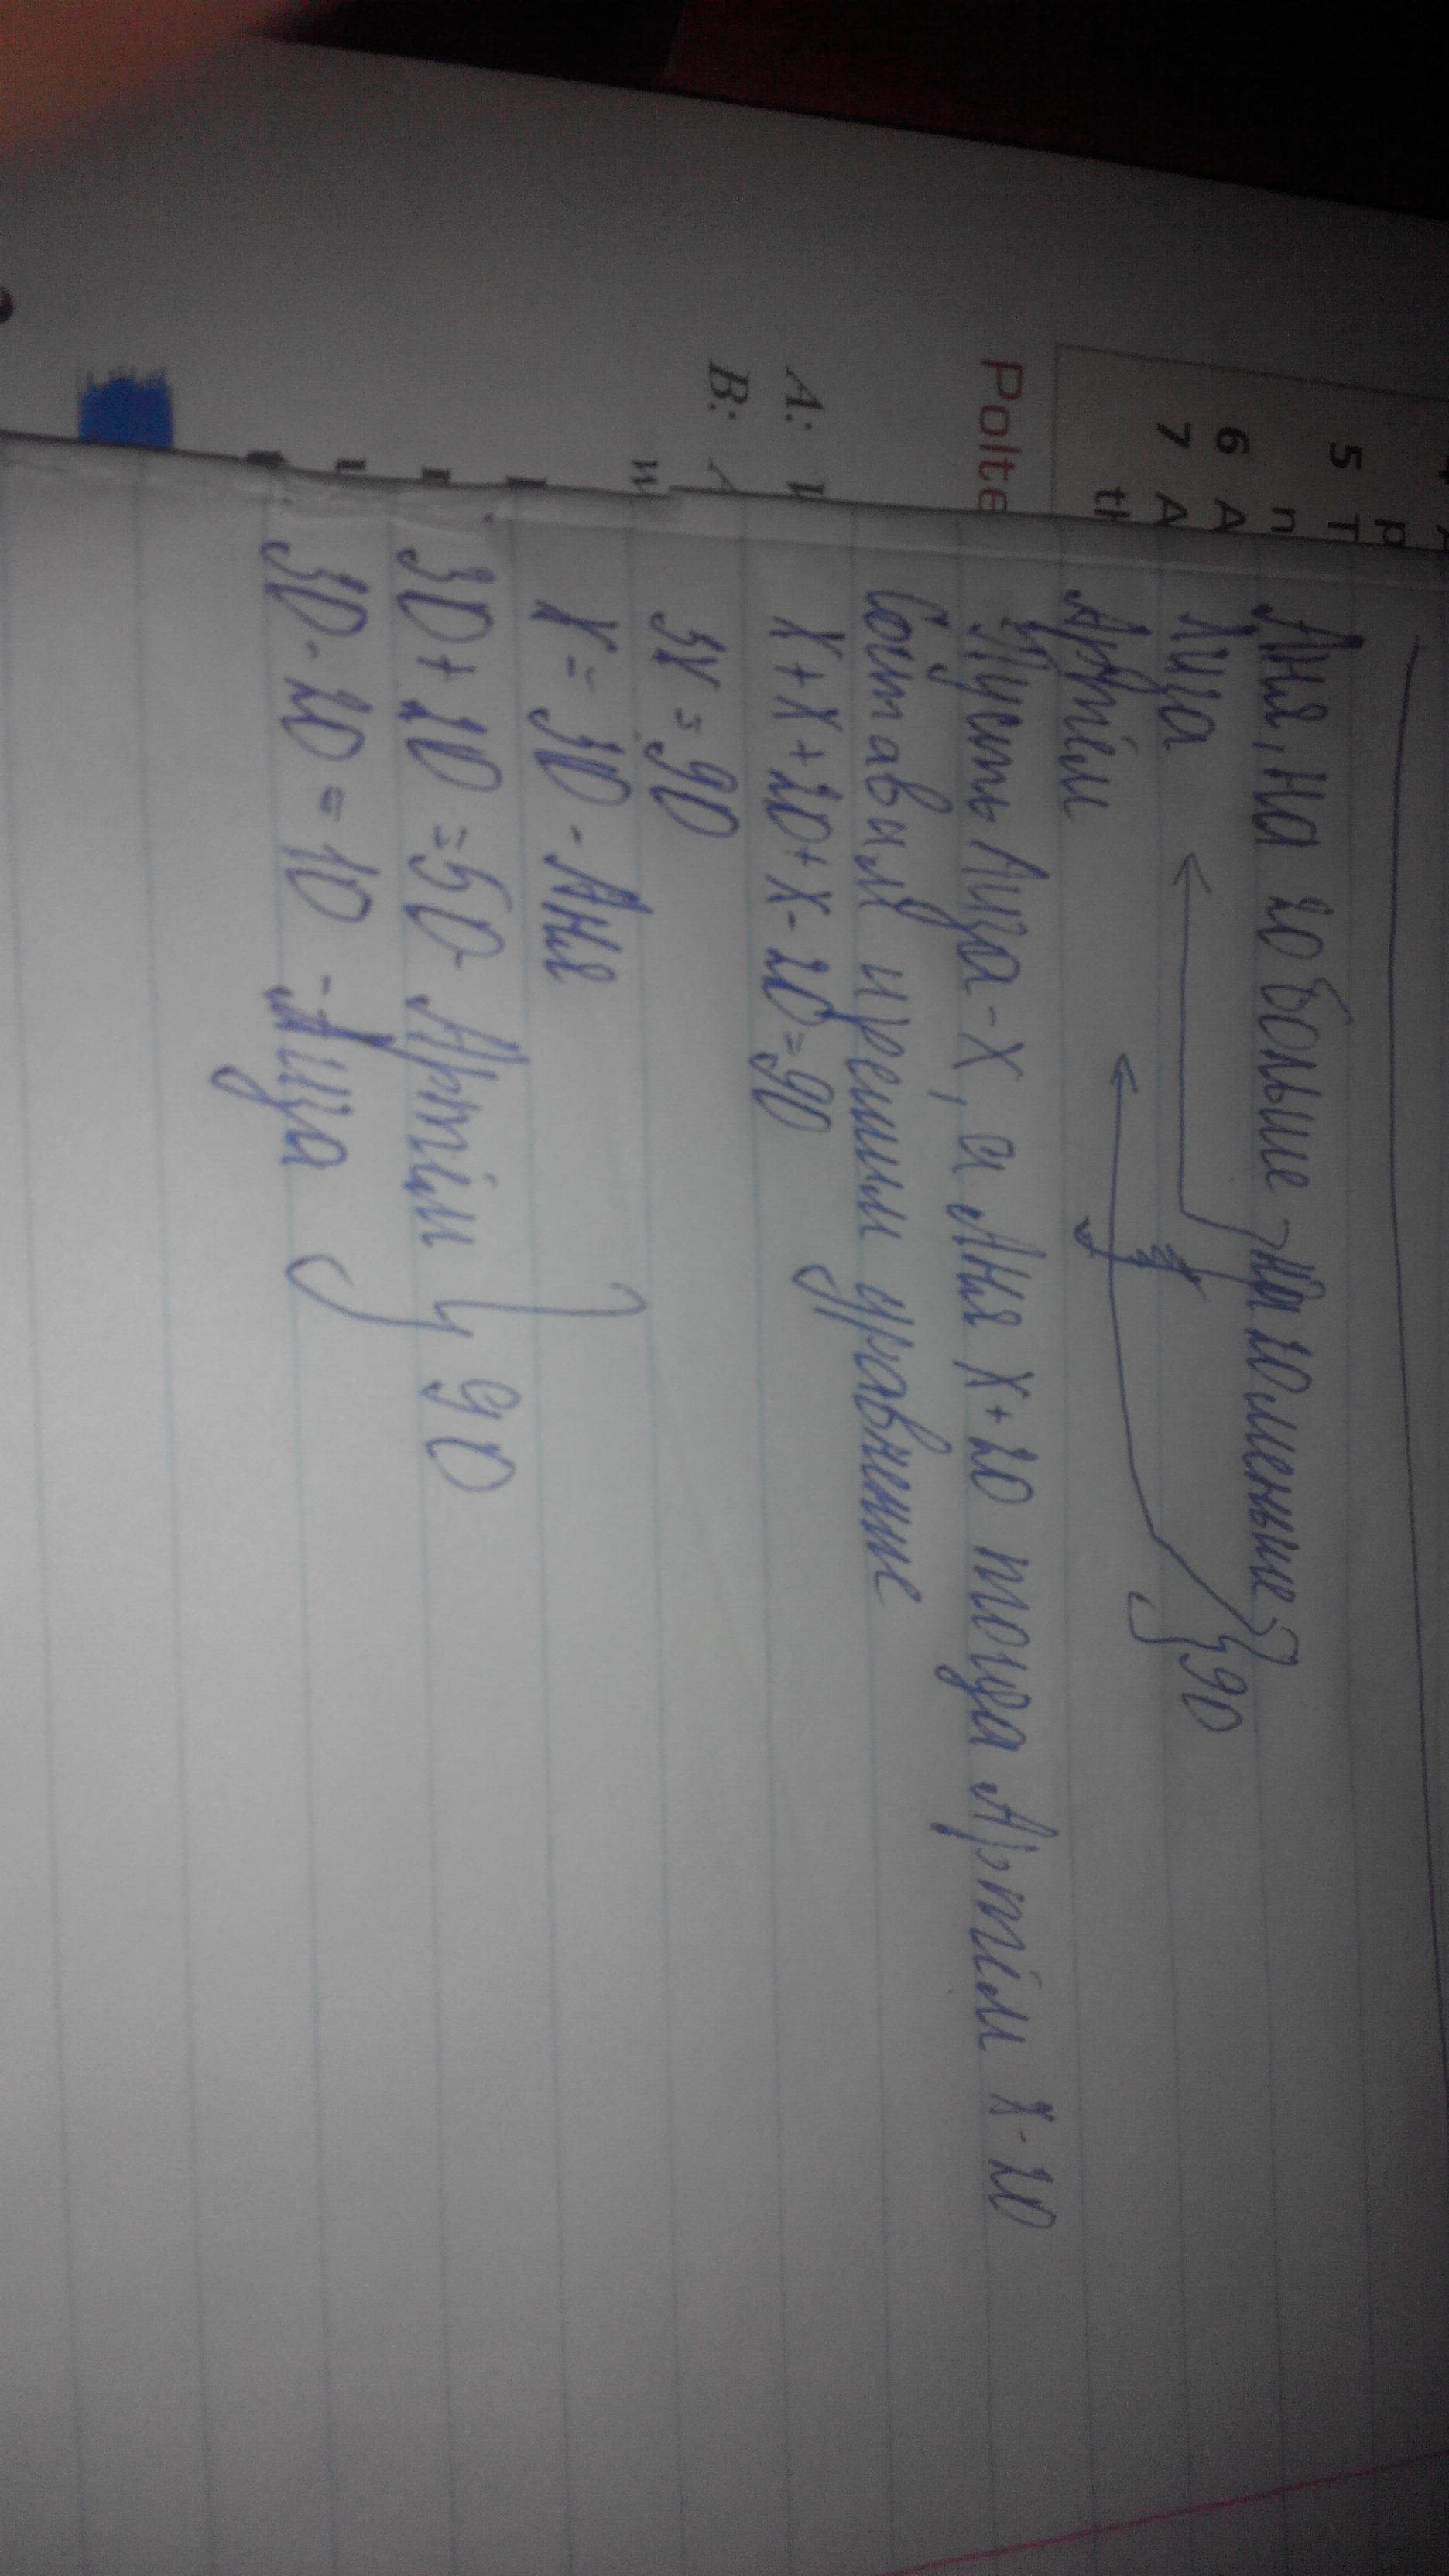 5 T
n
6 A
7 A
th
Polte
A:
B: A
Аня, на 20 больше, на 20 меньше
Лиза
Артём
90
Пусть Лиза - х, а Аня х+20 тогда Артём х-20
Составим и решим уравнение
х+х+20+х-20=90
3х = 90
х = 30 - Аня
30+20=50 - Артём
30-20=10 - Лиза
90